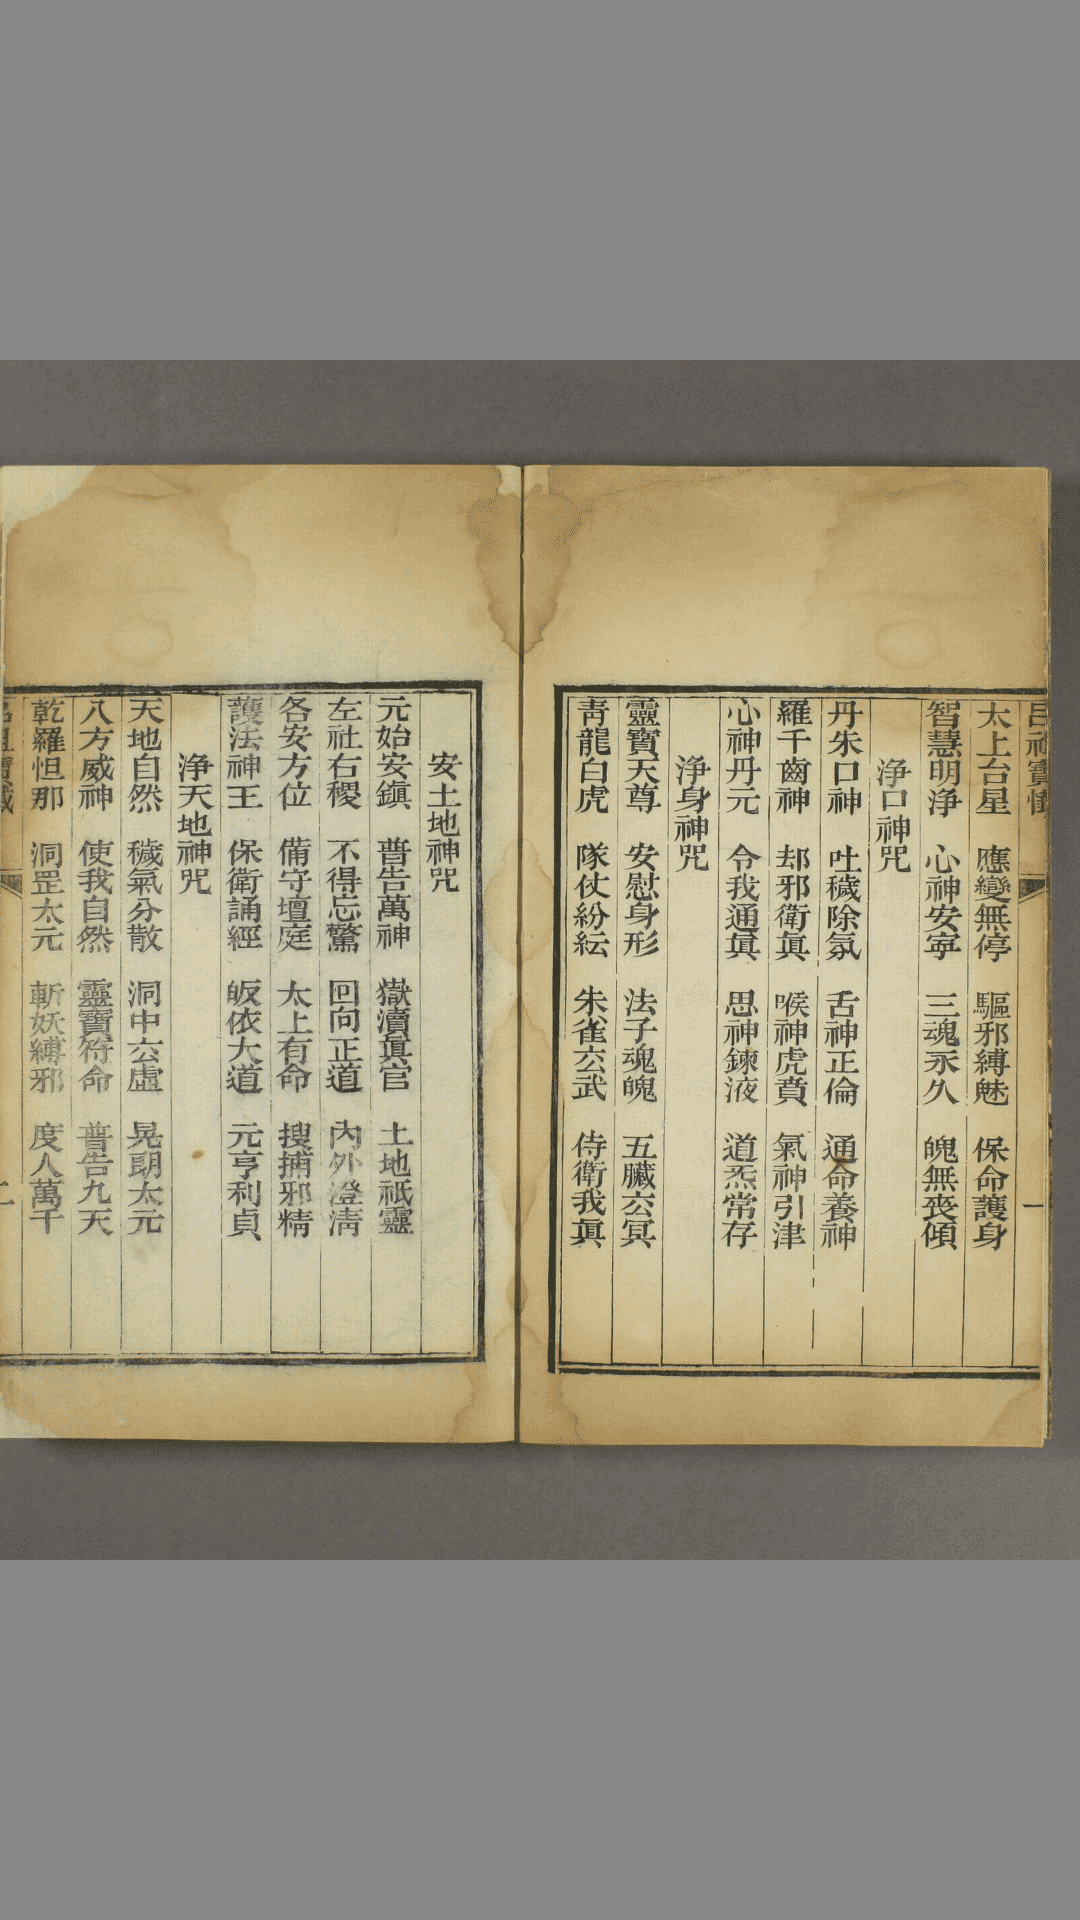 呂祖寶懺
一
太上台星 應變無停 驅邪縛魅 保命護身
智慧明淨 心神安寕 三魂永久 魄無喪傾
淨口神咒
丹朱口神 吐穢除氛 舌神正倫 通命養神
羅千齒神 却邪衛眞 喉神虎賁 氣神引津
心神丹元 令我通眞 思神鍊液 道炁常存
淨身神咒
靈寶天尊 安慰身形 法子魂魄 五臟玄冥
靑龍白虎 隊仗紛紜 朱雀玄武 侍衛我眞
安土地神咒
元始安鎭 普告萬神 嶽瀆眞官 土地祇靈
左社右稷 不得忘驚 回向正道 內外澄淸
各安方位 備守壇庭 太上有命 搜捕邪精
護法神王 保衛誦經 皈依大道 元亨利貞
淨天地神咒
天地自然 穢氣分散 洞中玄虛 晃朗太元
八方威神 使我自然 靈寶符命 普告九天
乾羅怛那 洞罡太元 斬妖縛邪 度人萬千
呂祖寶懺
二